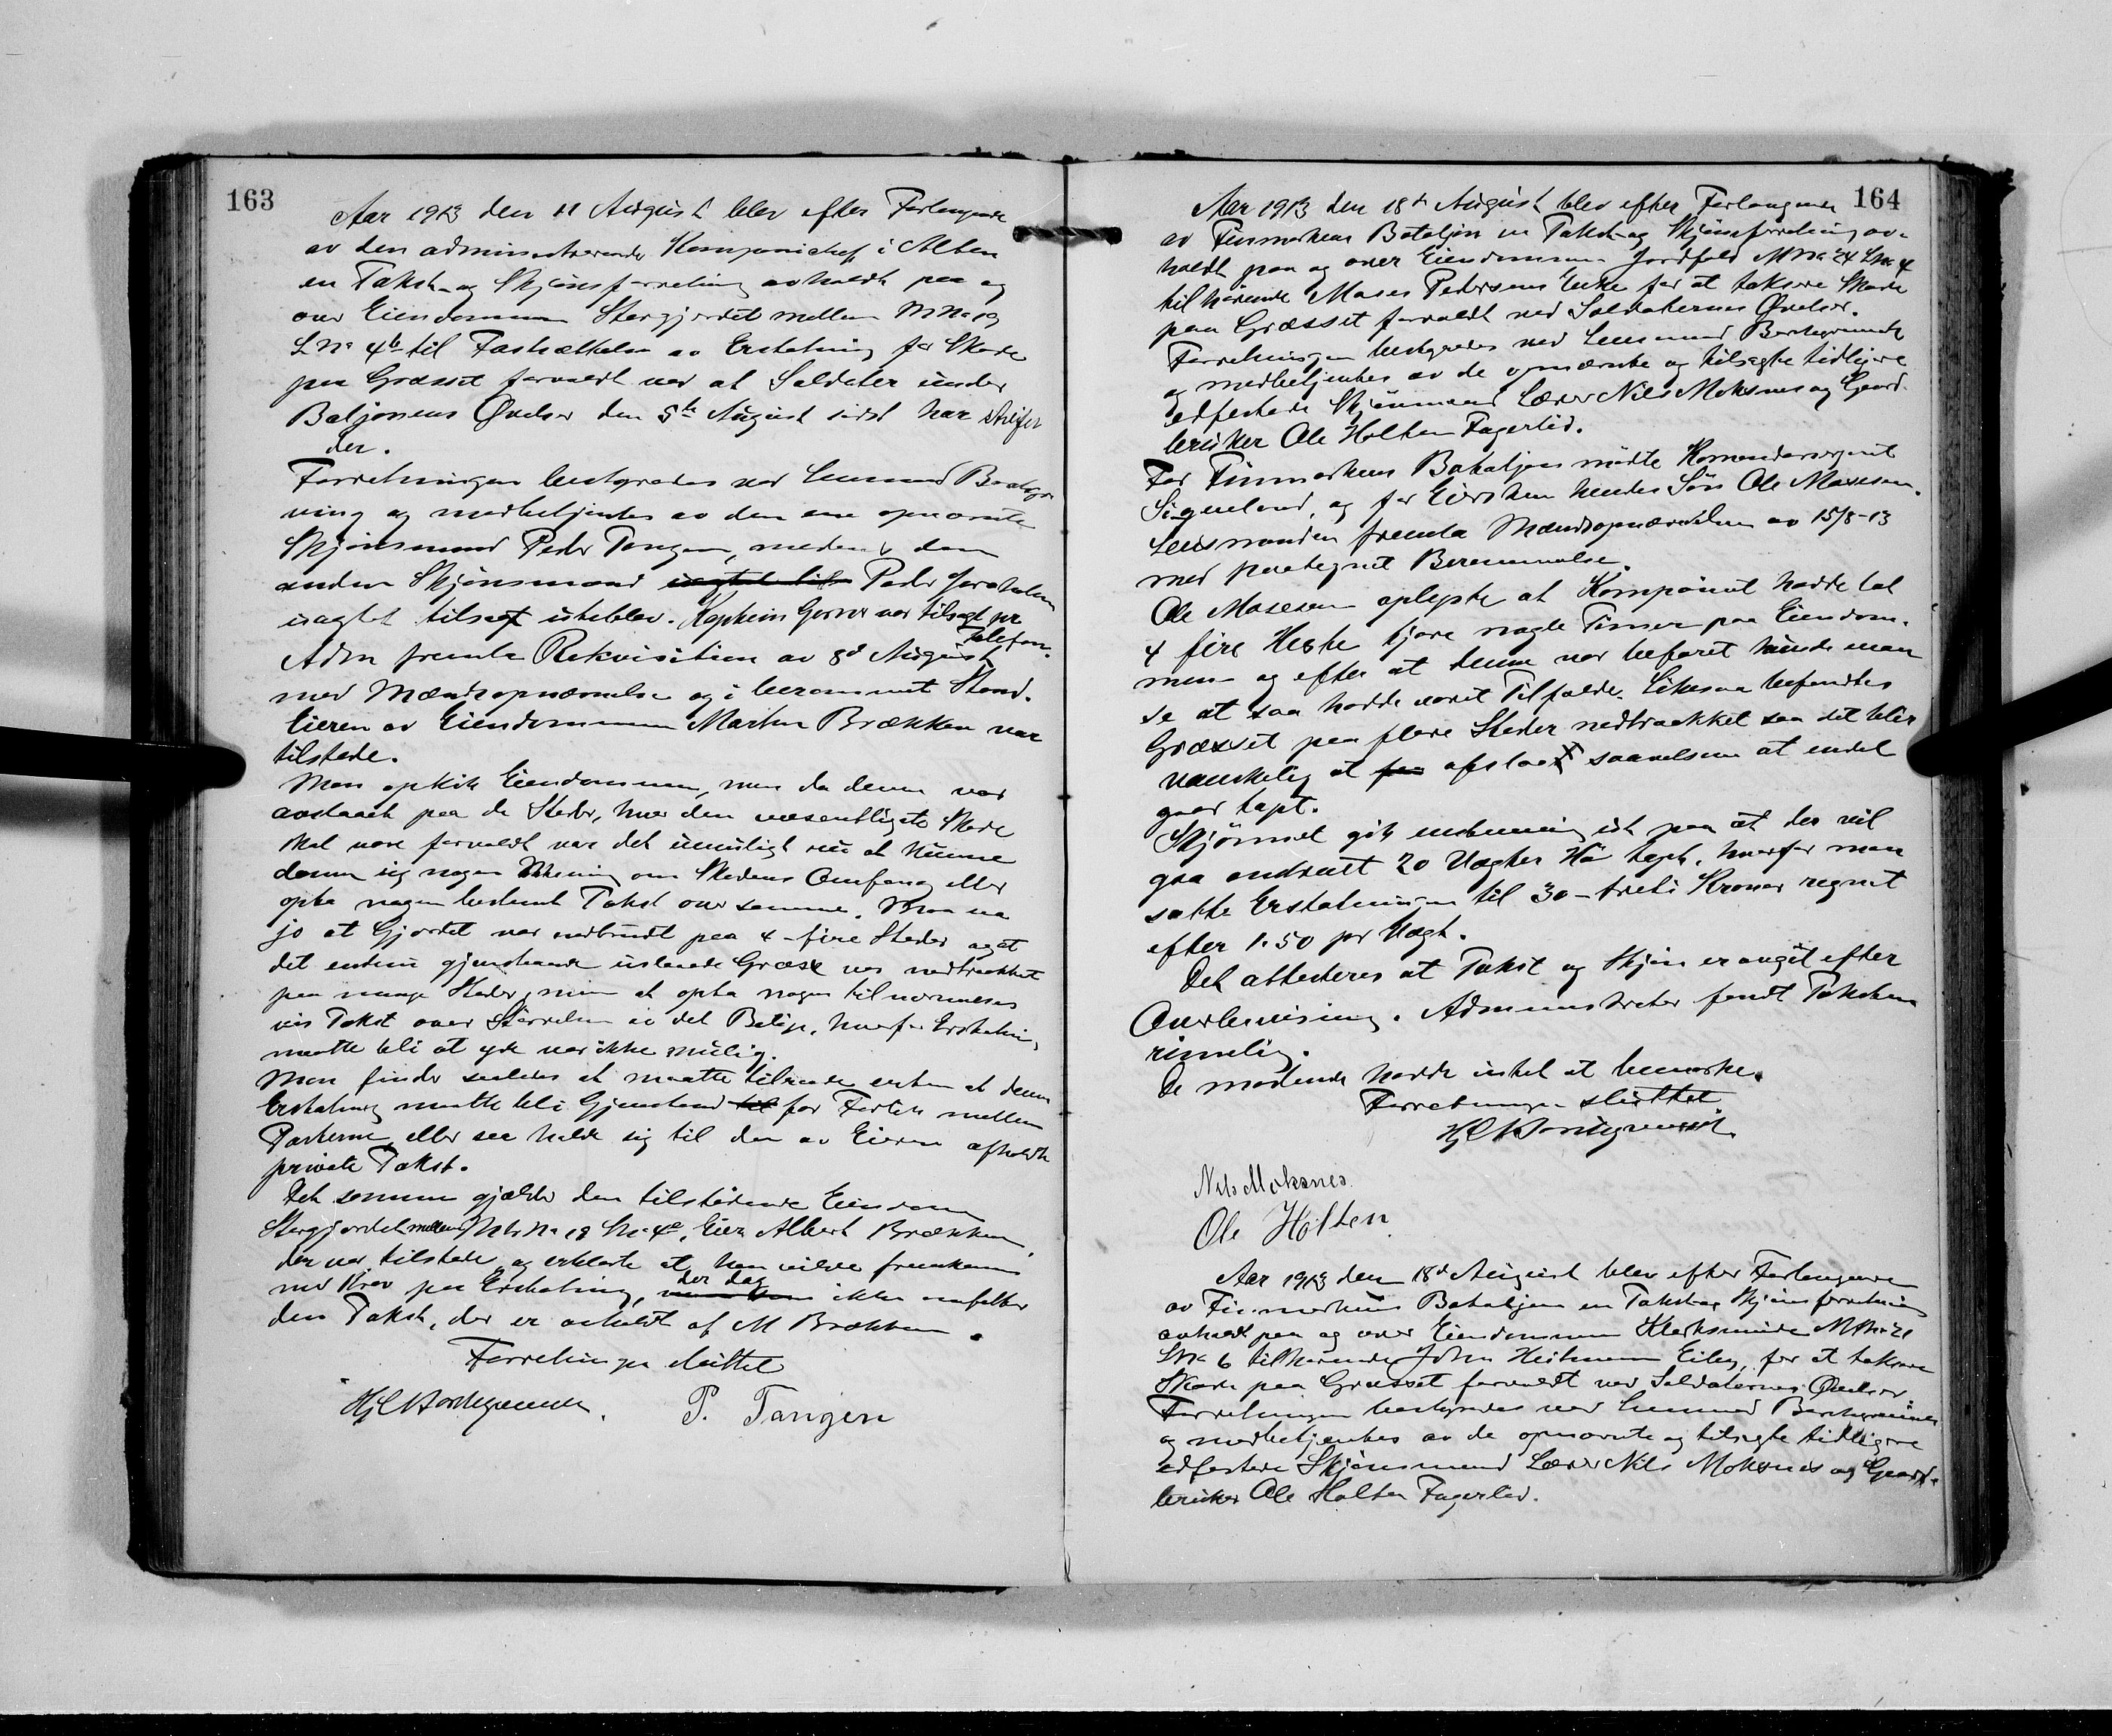 163
Aar 1913 den 11 August blev efter Forlangende
av den administrerende Kompanichef i Alten
en Takst- og Skjønsforretning avholdt paa og
over Eiendommen Storgjordet mellem M No 19
L No 4b til Fastsættelse av Erstatning for Skade
paa Græsset forvoldt ved at Soldater under
Baljonens Øvelser den 5te August sidst har
der.
Forretningen bestyredes ved Lensmand
og medbetjentes av den ene opnævnte
Skjønsmand Peder Tangen, medens den
anden Skjønsmand Peder
uagtet tilsagt uteblev. Kaptein var tilsagt pr
Telefon.
Adm fremla Rekvisition av 8d August
med Mændsopnævnelse og i berammet Stand.
Eieren av Eiendommen Martin Brækken var
tilstede.
Man opkik Eiendommen, men da denne var
avslaaet paa de Steder, hvor den væsentligste Skade
skal være forvoldt var det umuligt nu at kunne
danne sig nogen Mening om Skadens Omfang eller
opta nogen bestemt Takst over samme. Man saa
jo at Gjordet var nedbrudt paa 4 - fire Steder og at
det endnu gjenstaaende uslaaede Græs var nedtraakket
paa mange Steder, men at opta nogen tilnærmelses
vis Takst over Størrelsen av det Beløp, hvorfor Erstatning
maatte bli at yde var ikke mulig.
Man finder saaledes at maatte tilraade enten at denne
Erstatning maatte bli Gjenstand til for Forlik mellem
Parterne, eller saa holde sig til den av Eieren afholdte
private Takst.
Det samme gjælder den tilstødende Eiendom
Storgjordet mellem M No 19 L No 4a, Eier Albert Brækken,
der var tilstede og erklærte at han vilde fremkomme
med Krav paa Erstatning, der dog ikke omfattes
den Takst, der er avholdt af M Brækken.
Forretningen sluttet
P. Tangen
164
Aar 1913 den 18de August blev efter Forlangende
av Finmarkens Bataljon en Takst- og Skjønsforretning av-
holdt paa og over Eiendommen Jordfald M No 24 L No 4
tilhørende Moses Pedersens Enke for at taksere Skade
paa Græsset forvoldt ved Soldaternes Øvelser.
Forretningen bestyredes ved Lensmand
og medbetjentes av de opnævnte og tilsagte tidligere
edfæstede Skjønsmænd Lærer Nils Moksnes og Gaard-
bruker Ole Holten Fagerlid.
For Finmarkens Bataljon mødte Komandersergeant
Signeland, og for Eiersken hendes Søn Ole Mosesen.
Lensmanden fremla Mændsopnævnelsen av 15/8-13
med paategnet Berammelse.
Ole Mosesen oplyste at Kompaniet hadde lat
4 fire Heste kjøre nogle Timer paa Eiendom-
men og efter at denne var befaret kunde man
se at saa hadde været Tilfælde. Likesaa befandtes
Græsset paa flere Steder nedtraakket saa det blir
vanskelig at faa afslaat saavelsom at endel
gaar tapt.
Skjønnet gik enstemmig ut paa at der vil
gaa omdratt 20 Vægter Hø tapt, hvorfor man
satte Erstatningen til 30 - treti Kroner regnet
efter 1.50 pr Vægt.
Det attesteres at Takst og Skjøn er avgit efter
Overbevisning. Administrator fandt Taksten
rimelig.
De mødende hadde intet at bemærke.
Forretningen sluttet
Nils Moksnes
Ole Holten
Aar 1913 den 18d August blev efter Forlangende
av Finmarkens Bataljon en Takst- og Skjønsforretning
avholdt paa og over Eiendommen M No 21
L No 6 tilhørende John Heitmann Eiby, for at taksere
Skade paa Græsset forvoldt ved Soldaternes Øvelser.
Forretningen bestyredes ved Lensmand
og medbetjentes av de opnævnte og tilsagte tidligere
edfæstede Skjønsmænd Lærer Nils Moksnes og Gaard-
bruker Ole Holten Fagerlid.